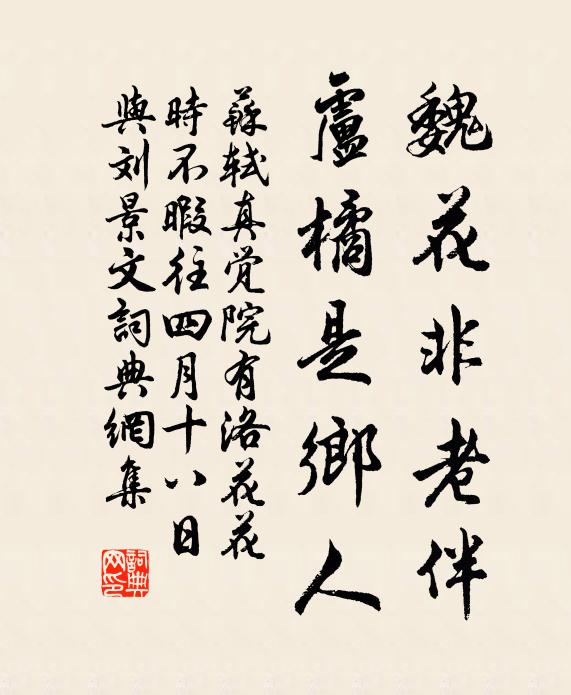 魏花非老伴
盧橘是鄉人
蘇軾真觉院有洛花花
時不暇往四月十八日
與刘景文詞典網集
詞典
网印